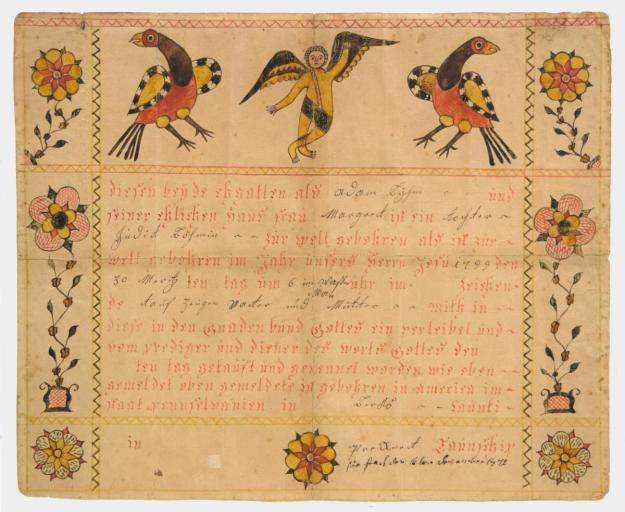 diesen beÿde ehgatten als adam Böhm und
seiner ehlichen Haus frau Margaret ist ein tochter
Judit Böhmin zur welt gebohren als ist zur
welt gebohren im Jahr unsers Herrn Jesu 1799 den
30 Mertz ten tag um 6 im uhr im zeichen
de tauf zeugen vatter und Mutter with in
diese in den Gnaden bund Gottes ein verleibet und
vom prediger und diener des worts Gottes den
ten tag getauft und genennet worden wie oben
gemeldet oben gemeldete ist gebohren in america im
staat pennsylvanien in Berks Caunti
in Taunschip
den